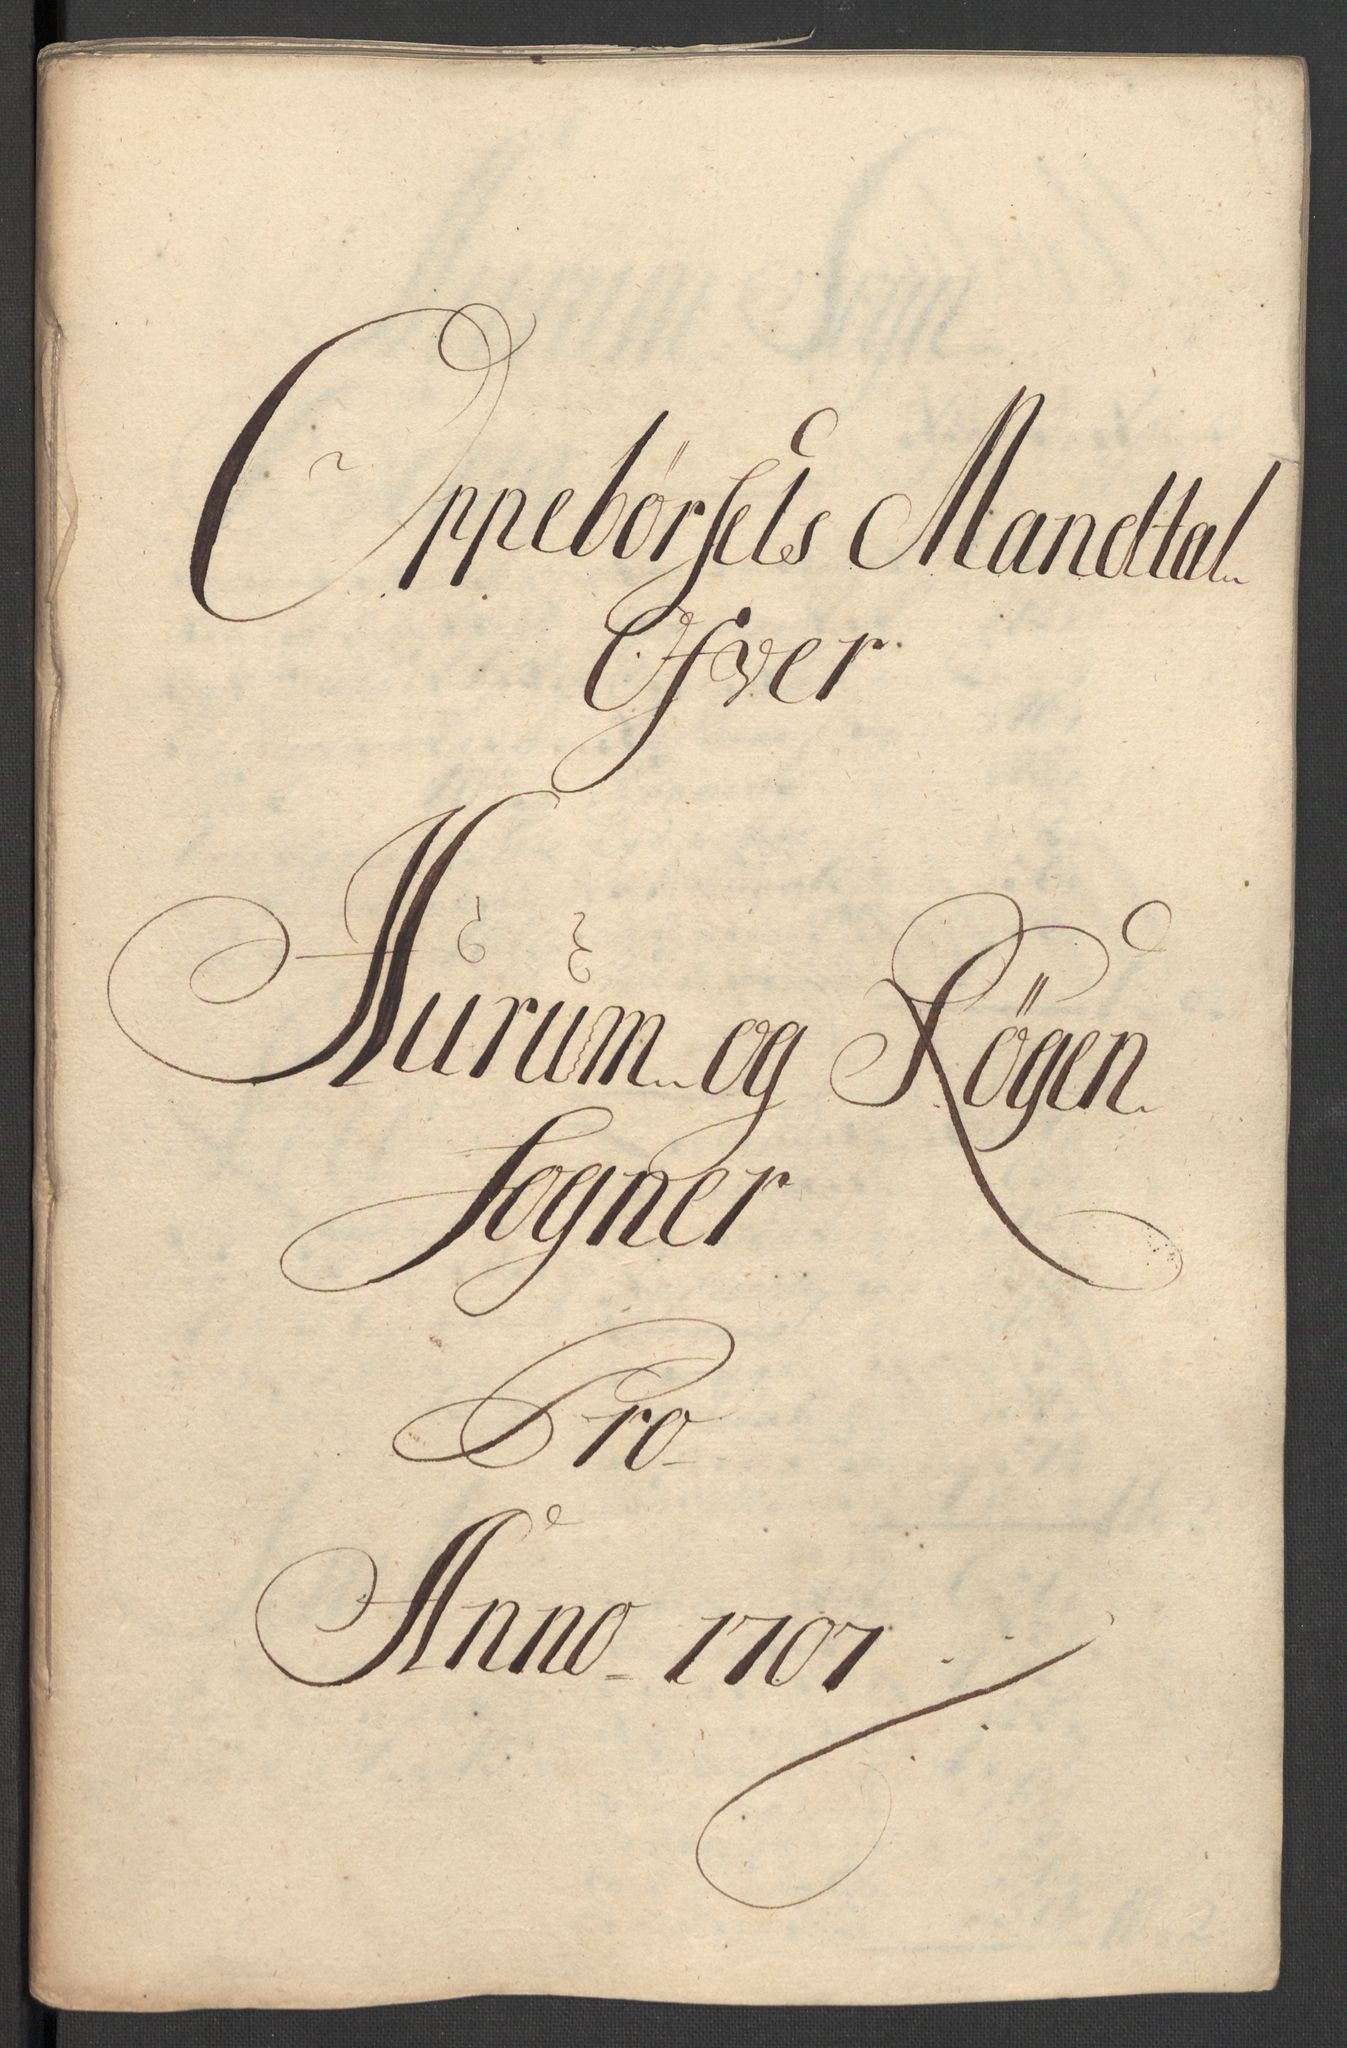 Oppebørsels Mandtal
Ofver
Hurum og Rögen
Sogner
Pro
Anno 1707